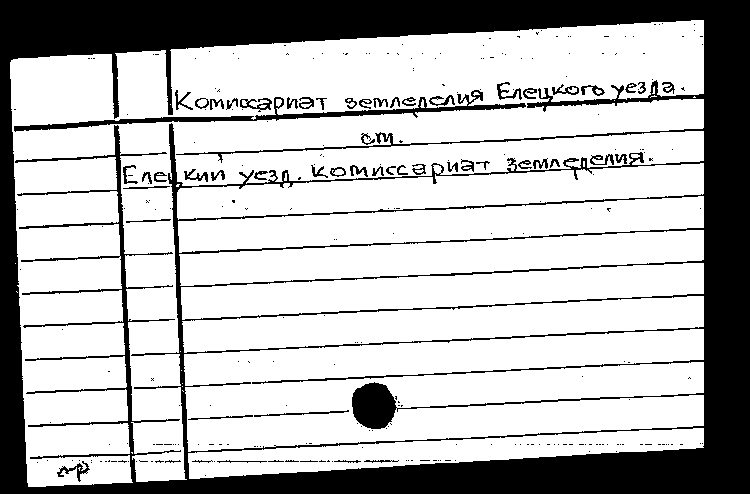 Комиссариат земледелия Елецкого уезда.
см.
Елецкий уезд. Комиссариат земледелия.